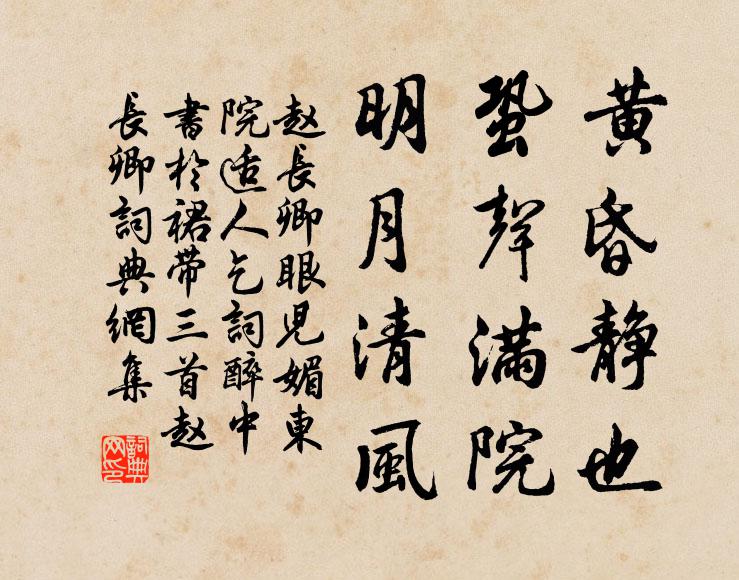 黄昏静也
蛩聲滿院
明月清風
赵長卿眼兒媚東
院适人乞詞醉中
書於裙带三首赵
長卿詞典網集
詞典網印